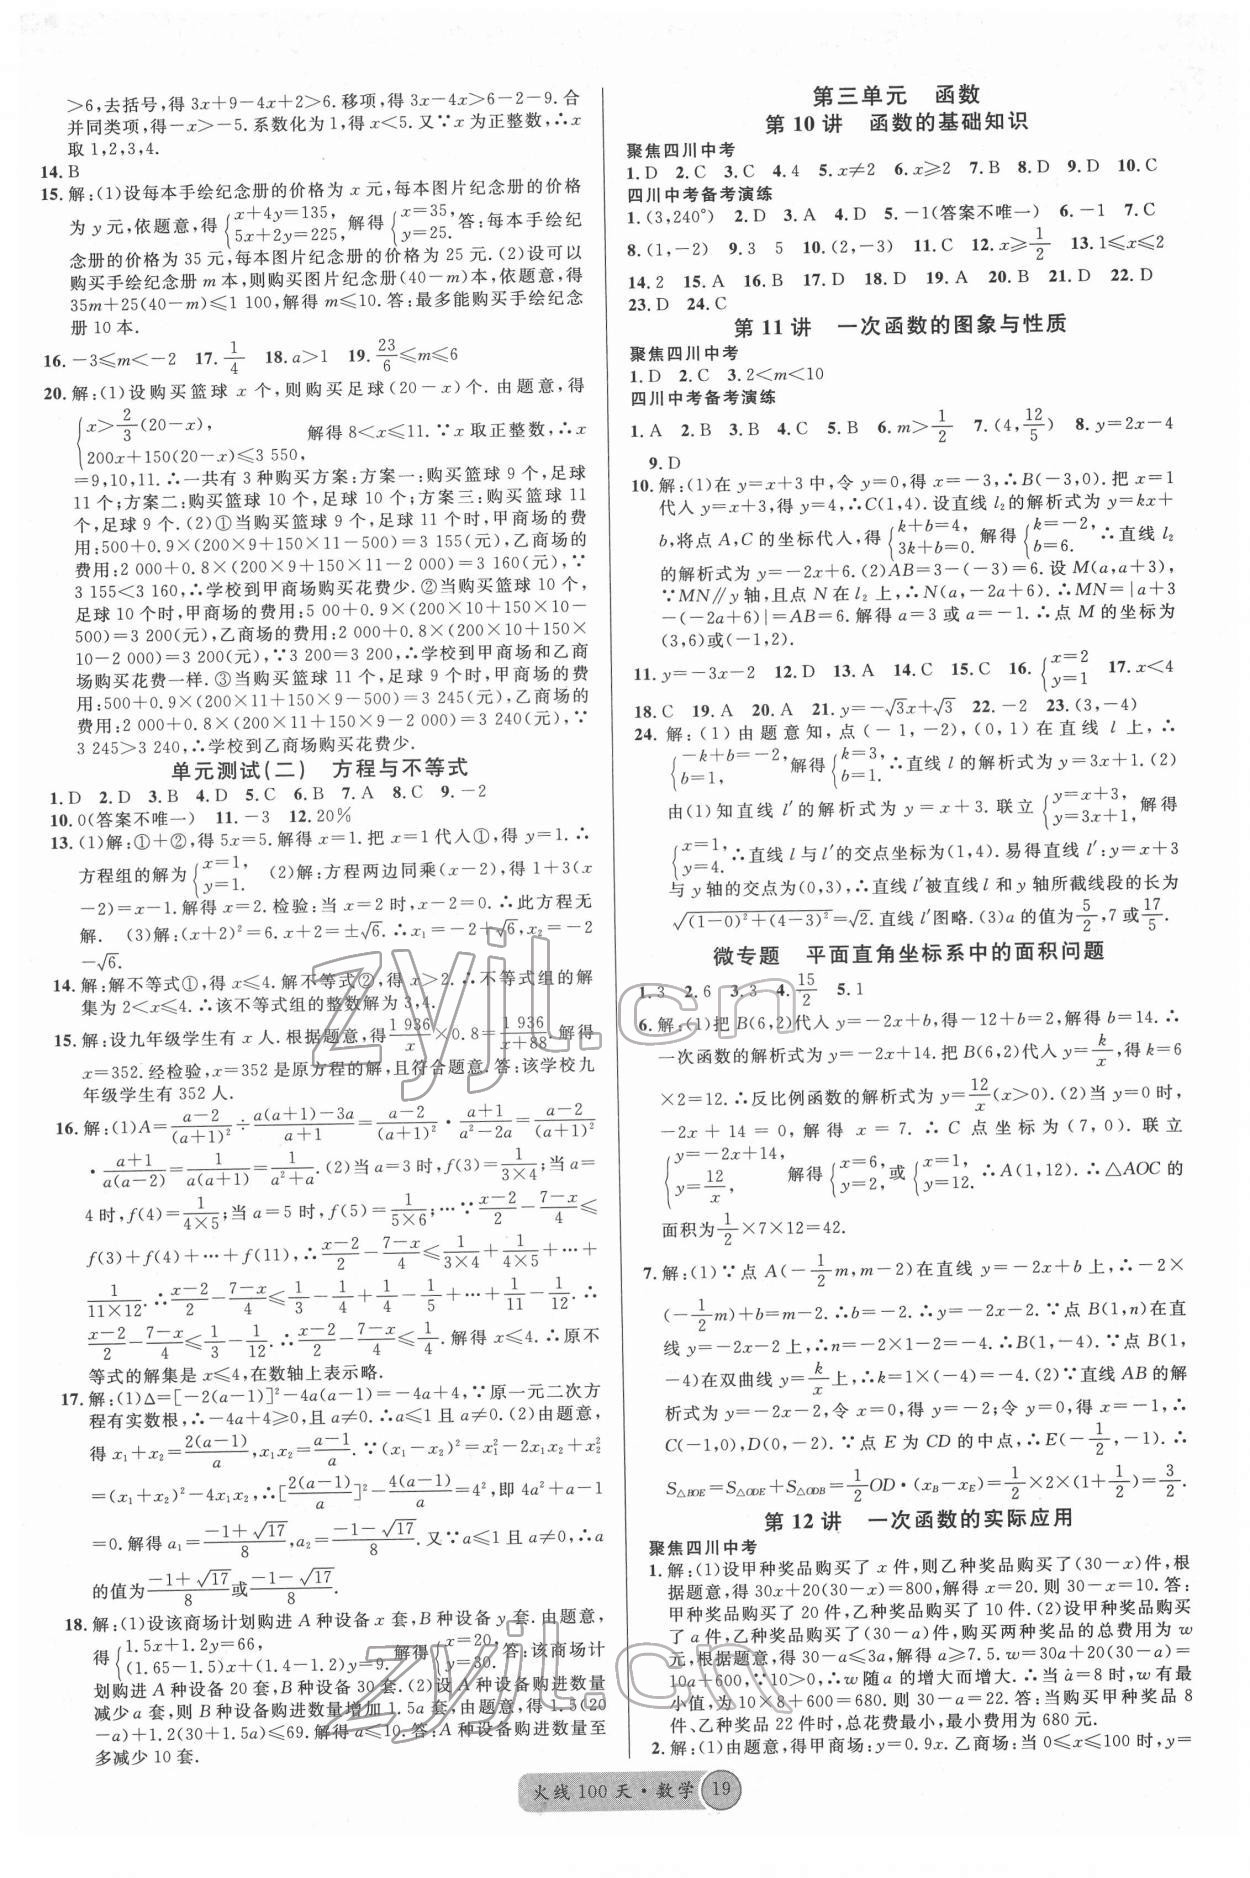 >6,去括号,得 3x+9-4x+2>6.移项,得 3x-4x>6-2-9.合
并同类项,得-x>-5.系数化为 1,得 x<5.又∵x 为正整数,∴x
取 1,2,3,4.
14.B
15.解:(1)设每本手绘纪念册的价格为 x 元,每本图片纪念册的价格
为 y 元,依题意,得{x+4y=135, 5x+2y=225, 解得{x=35, y=25. 答:每本手绘纪
念册的价格为 35 元,每本图片纪念册的价格为 25 元.(2)设可以
购买手绘纪念册 m 本,则购买图片纪念册(40-m)本,依题意,得
35m+25(40-m)≤1 100,解得 m≤10.答:最多能购买手绘纪念
册 10 本.
16.-3≤m<-2 17.1/4 18.a>1 19.23/6≤m≤6
20.解:(1)设购买篮球 x 个,则购买足球(20-x)个.由题意,得
{x>2/3(20-x), 200x+150(20-x)≤3 550, 解得 8<x≤11.∵x 取正整数,∴x
=9,10,11.∴一共有 3 种购买方案:方案一:购买篮球 9 个,足球
11 个;方案二:购买篮球 10 个,足球 10 个;方案三:购买篮球 11
个,足球 9 个.(2)①当购买篮球 9 个,足球 11 个时,甲商场的费
用:500+0.9×(200×9+150×11-500)=3 155(元),乙商场的
费用:2 000+0.8×(200×9+150×11-2 000)=3 160(元),∵
3 155<3 160,∴学校到甲商场购买花费少.②当购买篮球 10 个,
足球 10 个时,甲商场的费用:5 00+0.9×(200×10+150×10-
500)=3 200(元),乙商场的费用:2 000+0.8×(200×10+150
×10-2 000)=3 200(元),∵3 200=3 200,∴学校到甲商场和乙商
场购买花费一样.③当购买篮球 11 个,足球 9 个时,甲商场的费
用:500+0.9×(200×11+150×9-500)=3 245(元),乙商场的
费用:2 000+0.8×(200×11+150×9-2 000)=3 240(元),∵
3 245>3 240,∴学校到乙商场购买花费少.
单元测试(二) 方程与不等式
1.D 2.D 3.B 4.D 5.C 6.B 7.A 8.C 9.-2
10.0(答案不唯一) 11.-3 12.20%
13.(1)解:①+②,得 5x=5.解得 x=1.把 x=1 代入①,得 y=1.∴
方程组的解为{x=1, y=1. (2)解:方程两边同乘(x-2),得 1+3(x
-2)=x-1.解得 x=2.检验:当 x=2 时,x-2=0.∴此方程无
解. (3)解:(x+2)²=6.x+2=±√6.∴x₁=-2+√6,x₂=-2
-√6.
14.解:解不等式①,得 x≤4.解不等式②,得 x>2.∴不等式组的解
集为 2<x≤4.∴该不等式组的整数解为 3,4.
15.解:设九年级学生有 x 人.根据题意,得1 936/x×0.8=1 936/(x+88).解得
x=352.经检验,x=352 是原方程的解,且符合题意.答:该学校九
年级学生有 352 人.
16.解:(1)A=(a-2)/(a+1)²÷(a(a+1)-3a)/(a+1)=(a-2)/(a+1)²·(a+1)/(a²-2a)=(a-2)/(a+1)²
·(a+1)/(a(a-2))=1/(a(a+1))=1/(a²+a).(2)当 a=3 时,f(3)=1/(3×4);当 a=
4 时,f(4)=1/(4×5);当 a=5 时,f(5)=1/(5×6);…∵(x-2)/2-(7-x)/4≤
f(3)+f(4)+…+f(11),∴(x-2)/2-(7-x)/4≤1/(3×4)+1/(4×5)+…+
1/(11×12).∴(x-2)/2-(7-x)/4≤1/3-1/4+1/4-1/5+…+1/11-1/12.∴
(x-2)/2-(7-x)/4≤1/3-1/12.∴(x-2)/2-(7-x)/4≤1/4.解得 x≤4.∴原不
等式的解集是 x≤4,在数轴上表示略.
17.解:(1)Δ=[-2(a-1)]²-4a(a-1)=-4a+4,∵原一元二次方
程有实数根,∴-4a+4≥0,且 a≠0.∴a≤1 且 a≠0.(2)由题意,
得 x₁+x₂=2(a-1)/a,x₁x₂=(a-1)/a.∵(x₁-x₂)²=x₁²-2x₁x₂+x₂²
=(x₁+x₂)²-4x₁x₂,∴[2(a-1)/a]²-4(a-1)/a=4²,即 4a²+a-1
=0.解得 a₁=(-1+√17)/8,a₂=(-1-√17)/8.又∵a≤1 且 a≠0.∴a
的值为(-1+√17)/8或(-1-√17)/8.
18.解:(1)设该商场计划购进 A 种设备 x 套,B 种设备 y 套.由题意,
得{1.5x+1.2y=66, (1.65-1.5)x+(1.4-1.2)y=9. 解得{x=20, y=30. 答:该商场计
划购进 A 种设备 20 套,B 种设备 30 套.(2)设 A 种设备购进数量
减少 a 套,则 B 种设备购进数量增加 1.5a 套,由题意,得 1.5(20
-a)+1.2(30+1.5a)≤69.解得 a≤10.答:A 种设备购进数量至
多减少 10 套.
第三单元 函数
第 10 讲 函数的基础知识
聚焦四川中考
1.D 2.C 3.C 4.4 5.x≠2 6.x≥2 7.B 8.D 9.D 10.C
四川中考备考演练
1.(3,240°) 2.D 3.A 4.D 5.-1(答案不唯一) 6.-1 7.C
8.(1,-2) 9.3 5 10.(2,-3) 11.C 12.x≥1/2 13.1≤x≤2
14.2 15.A 16.B 17.D 18.D 19.A 20.B 21.D 22.D
23.D 24.C
第 11 讲 一次函数的图象与性质
聚焦四川中考
1.D 2.C 3.2<m<10
四川中考备考演练
1.A 2.B 3.B 4.C 5.B 6.m>1/2 7.(4,12/5) 8.y=2x-4
9.D
10.解:(1)在 y=x+3 中,令 y=0,得 x=-3,∴B(-3,0).把 x=1
代入 y=x+3,得 y=4,∴C(1,4).设直线 l₂的解析式为 y=kx+
b,将点 A,C 的坐标代入,得{k+b=4, 3k+b=0. 解得{k=-2, b=6. ∴直线 l₂
的解析式为 y=-2x+6.(2)AB=3-(-3)=6.设 M(a,a+3),
∵MN∥y 轴,且点 N 在 l₂ 上,∴N(a,-2a+6).∴MN=|a+3
-(-2a+6)|=AB=6.解得 a=3 或 a=-1.∴点 M 的坐标为
(3,6)或(-1,2).
11.y=-3x-2 12.D 13.A 14.C 15.C 16.{x=2 y=1 17.x<4
18.C 19.A 20.A 21.y=-√3x+√3 22.-2 23.(3,-4)
24.解:(1)由题意知,点(-1,-2),(0,1)在直线 l 上,∴
{-k+b=-2, b=1, 解得{k=3, b=1, ∴直线 l 的解析式为 y=3x+1.(2)
由(1)知直线 l′的解析式为 y=x+3.联立{y=x+3, y=3x+1, 解得
{x=1, y=4. ∴直线 l 与 l′的交点坐标为(1,4).易得直线 l′:y=x+3
与 y 轴的交点为(0,3),∴直线 l′被直线 l 和 y 轴所截线段的长为
√((1-0)²+(4-3)²)=√2.直线 l′图略.(3)a 的值为5/2,7 或17/5.
微专题 平面直角坐标系中的面积问题
1.3 2.6 3.3 4.15/2 5.1
6.解:(1)把 B(6,2)代入 y=-2x+b,得-12+b=2,解得 b=14.∴
一次函数的解析式为 y=-2x+14.把B(6,2)代入 y=k/x,得 k=6
×2=12.∴反比例函数的解析式为 y=12/x(x>0).(2)当 y=0 时,
-2x+14=0,解得 x=7.∴C 点坐标为(7,0).联立
{y=-2x+14, y=12/x, 解得{x=6, y=2, 或{x=1, y=12. ∴A(1,12).∴△AOC 的
面积为1/2×7×12=42.
7.解:(1)∵点 A(-1/2m,m-2)在直线 y=-2x+b 上,∴-2×
(-1/2m)+b=m-2.∴b=-2.∴y=-2x-2.∵点 B(1,n)在直
线 y=-2x-2 上,∴n=-2×1-2=-4.∴B(1,-4).∵点 B(1,
-4)在双曲线 y=k/x上,∴k=1×(-4)=-4.(2)∵直线 AB 的解
析式为 y=-2x-2,令 x=0,得 y=-2;令 y=0,得 x=-1,∴
C(-1,0),D(0,-2).∵点 E 为 CD 的中点,∴E(-1/2,-1).∴
S△BOE=S△ODE+S△ODB=1/2OD·(xB-xE)=1/2×2×(1+1/2)=3/2.
第 12 讲 一次函数的实际应用
聚焦四川中考
1.解:(1)设甲种奖品购买了 x 件,则乙种奖品购买了(30-x)件,根
据题意,得 30x+20(30-x)=800,解得 x=20.则 30-x=10.答:
甲种奖品购买了 20 件,乙种奖品购买了 10 件.(2)设甲种奖品购买
了 a 件,乙种奖品购买了(30-a)件,购买两种奖品的总费用为 w
元,根据题意,得 30-a≤3a,解得 a≥7.5.w=30a+20(30-a)=
10a+600,∵10>0,∴w 随 a 的增大而增大.∴当 a=8 时,w 有最
小值,为 10×8+600=680.则 30-a=22.答:当购买甲种奖品 8
件、乙种奖品 22 件时,总花费最小,最小费用为 680 元.
2.解:(1)由题意,得甲商场:y=0.9x.乙商场:当 0≤x≤100 时,y=
火线 100 天·数学 19
zyjl.cn
zyjl.cn